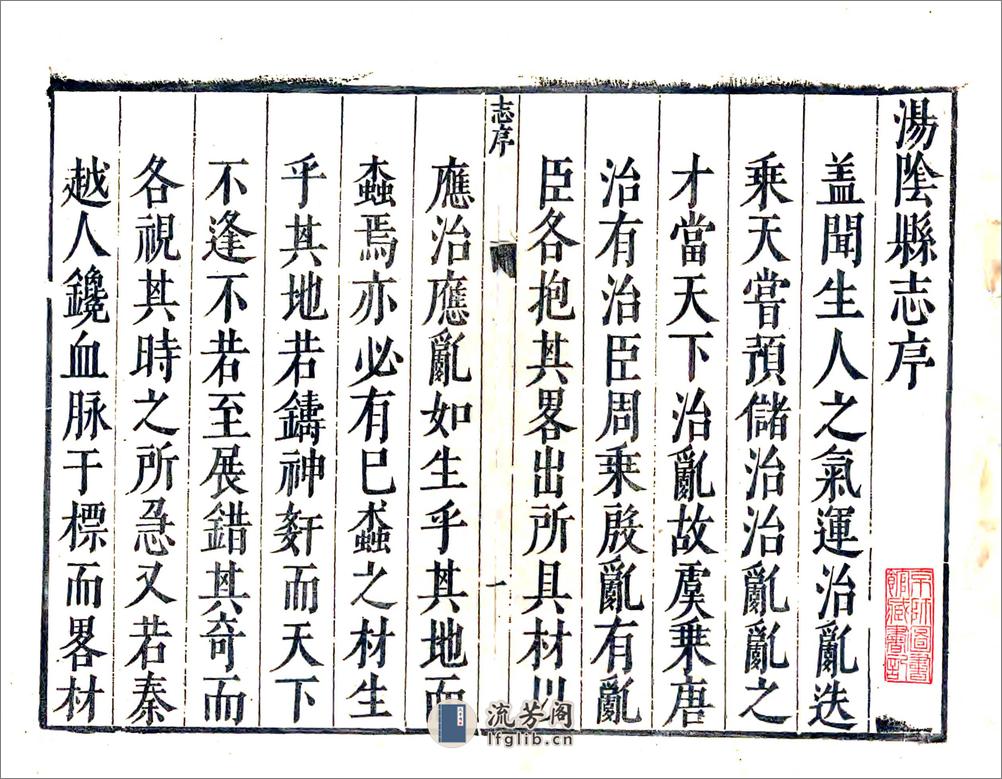 湯陰縣志序
盖聞生人之氣運治亂迭
乘天嘗預儲治治亂亂之
才當天下治亂故虞乘唐
治有治臣周乘殷亂有亂
臣各抱其畧出所具材以
志序
一
應治應亂如生乎其地而
螙焉亦必有已螙之材生
乎其地若鑄神姧而天下
不逢不若至展錯其奇而
各視其時之所急又若秦
越人鑱血脉于標而畧材
京師圖書
館藏書記
流芳阁
lfglib.cn